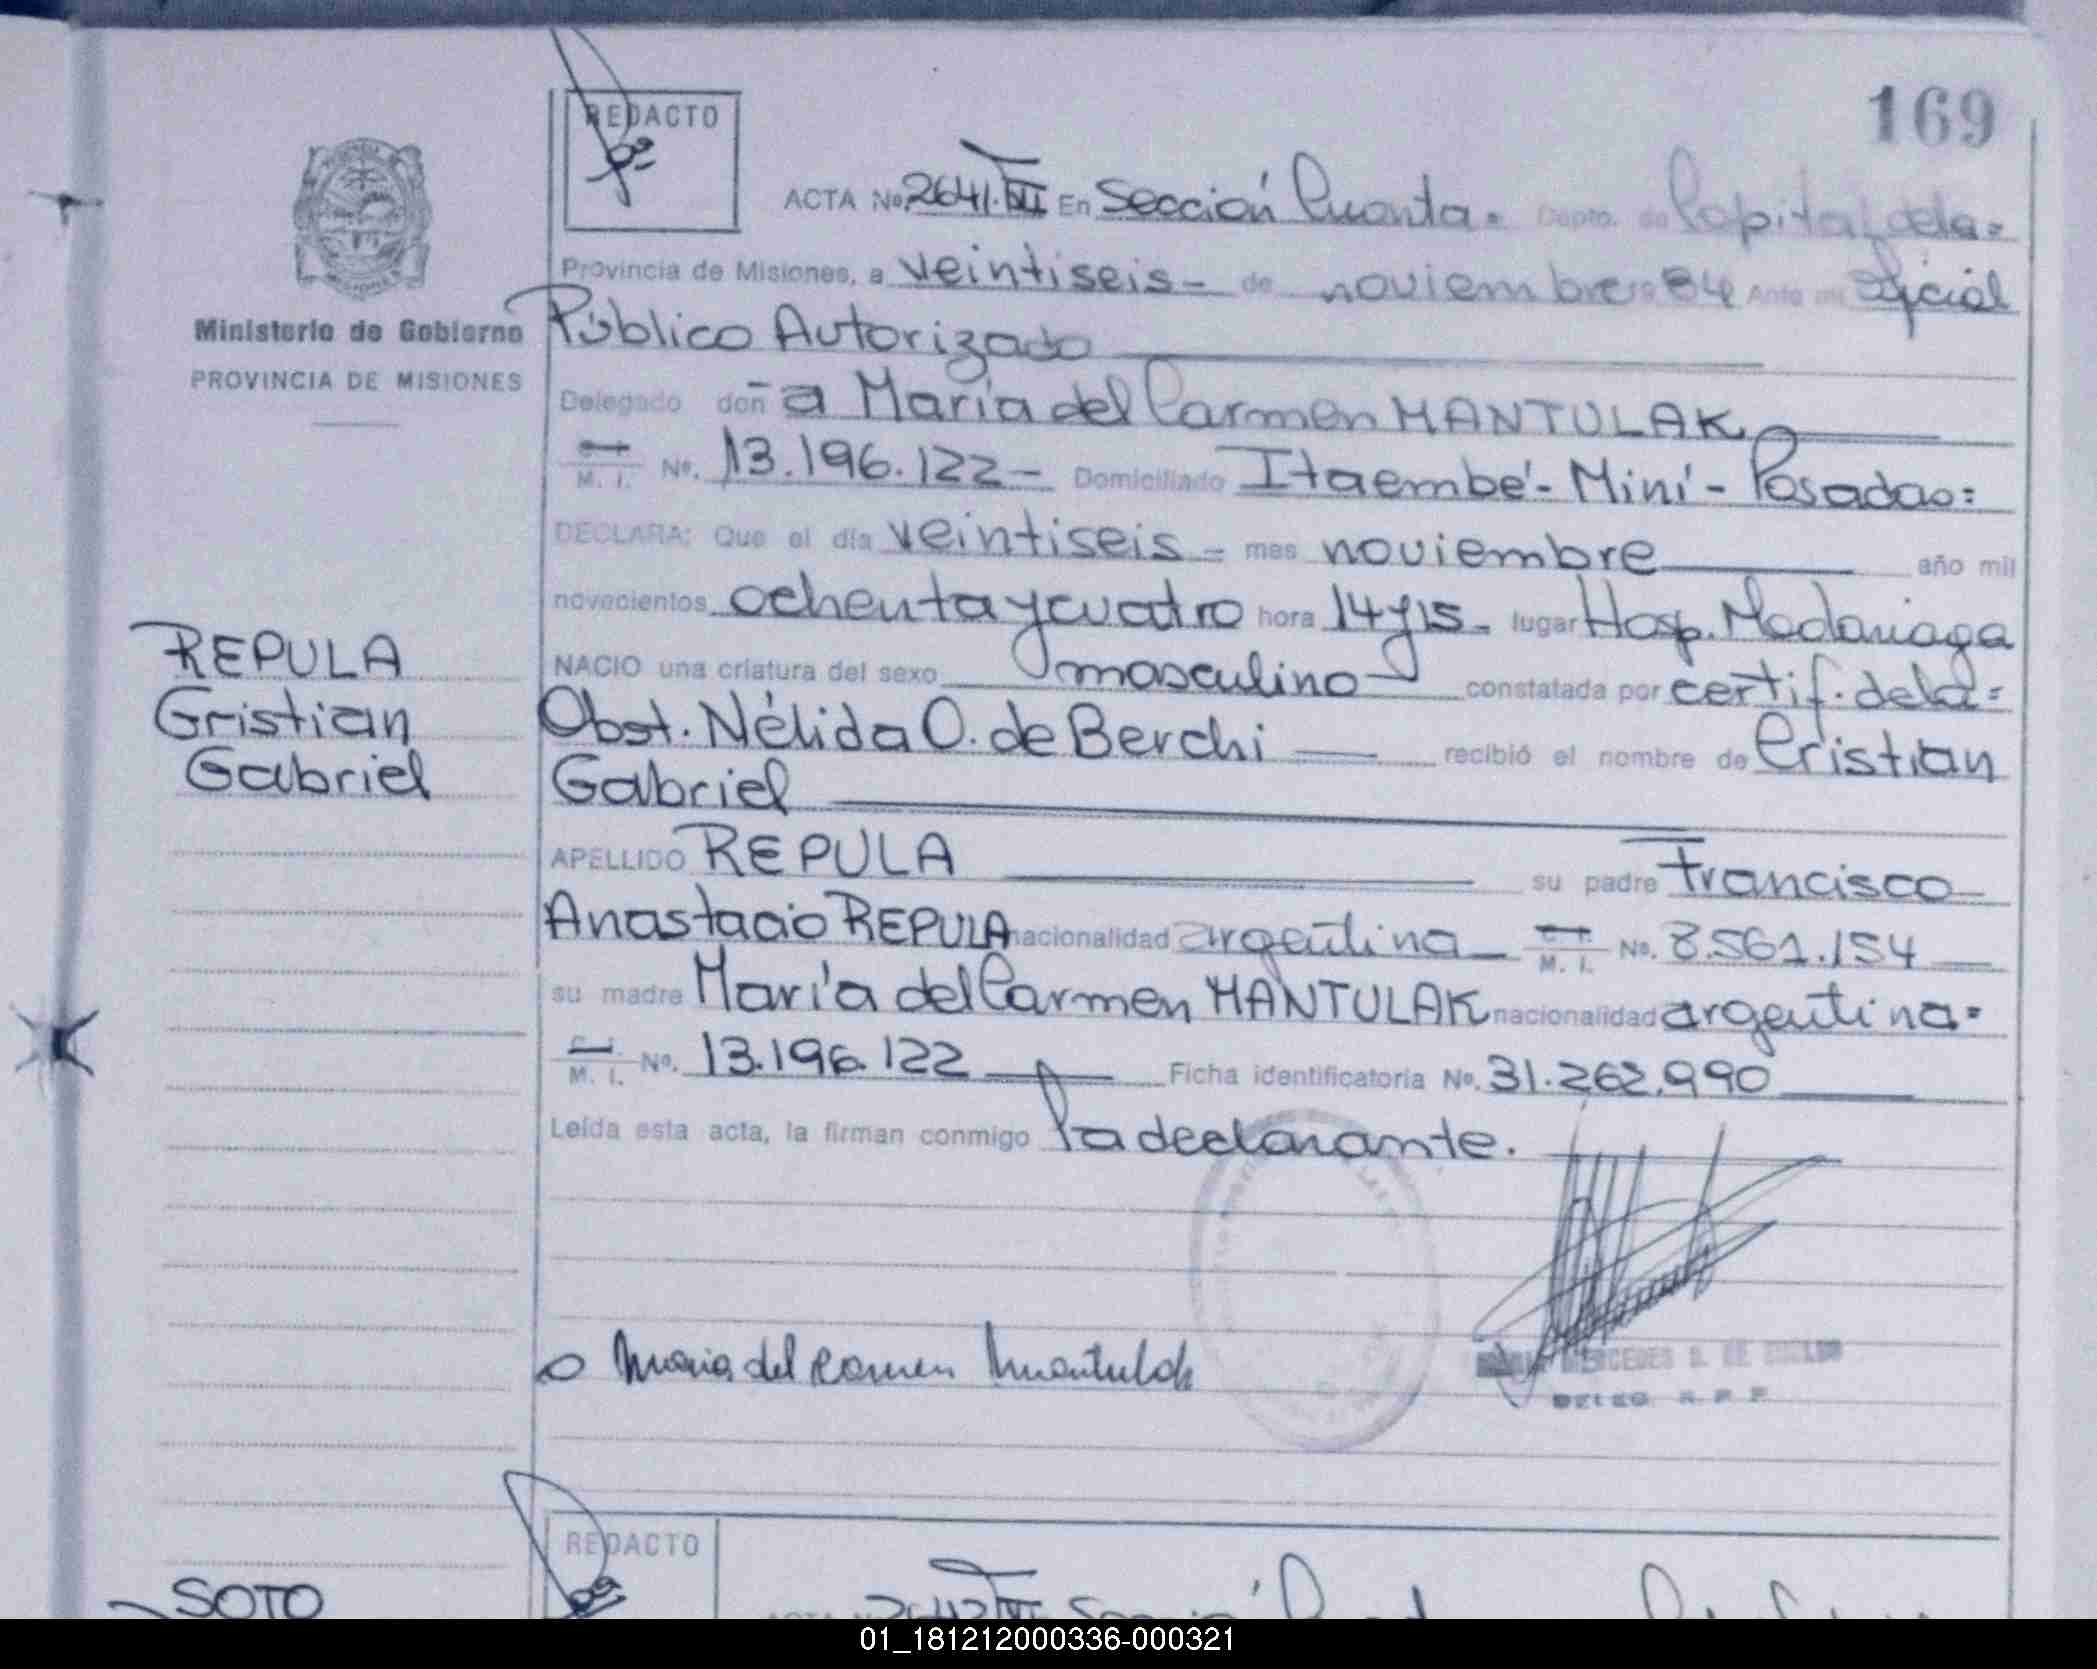 169
REDACTO
ACTA Nº 2641. VII En Sección Cuarta= Depto. de Capital, de la=
Provincia de Misiones, a veintiseis- de noviembre 84 Ante mi Oficial
Ministerio de Gobierno
PROVINCIA DE MISIONES
Público Autorizado
Delegado don a María del Carmen MANTULAK
M. I. Nº. 13.196.122- Domiciliado Itaembé- Miní- Posadas=
DECLARA: Que el día veintiseis- mes noviembre año mil
novecientos ochenta y cuatro hora 14 y 15- lugar Hosp. Madariaga
REPULA
Cristian
Gabriel
NACIO una criatura del sexo masculino constatada por certif. de la=
Obst. Nélida O. de Berchi recibió el nombre de Cristian
Gabriel
APELLIDO REPULA su padre Francisco
Anastacio REPULA nacionalidad argentina C. I. M. I. Nº. 8.561.154
su madre María del Carmen MANTULAK nacionalidad argentina=
C. I. M. I. Nº. 13.196.122 Ficha identificatoria Nº. 31.262.990
Leída esta acta, la firman conmigo la declarante.
Maria del Carmen Mantulak
MERCEDES
DELEG. R. P. P.
REDACTO
SOTO
01_181212000336-000321